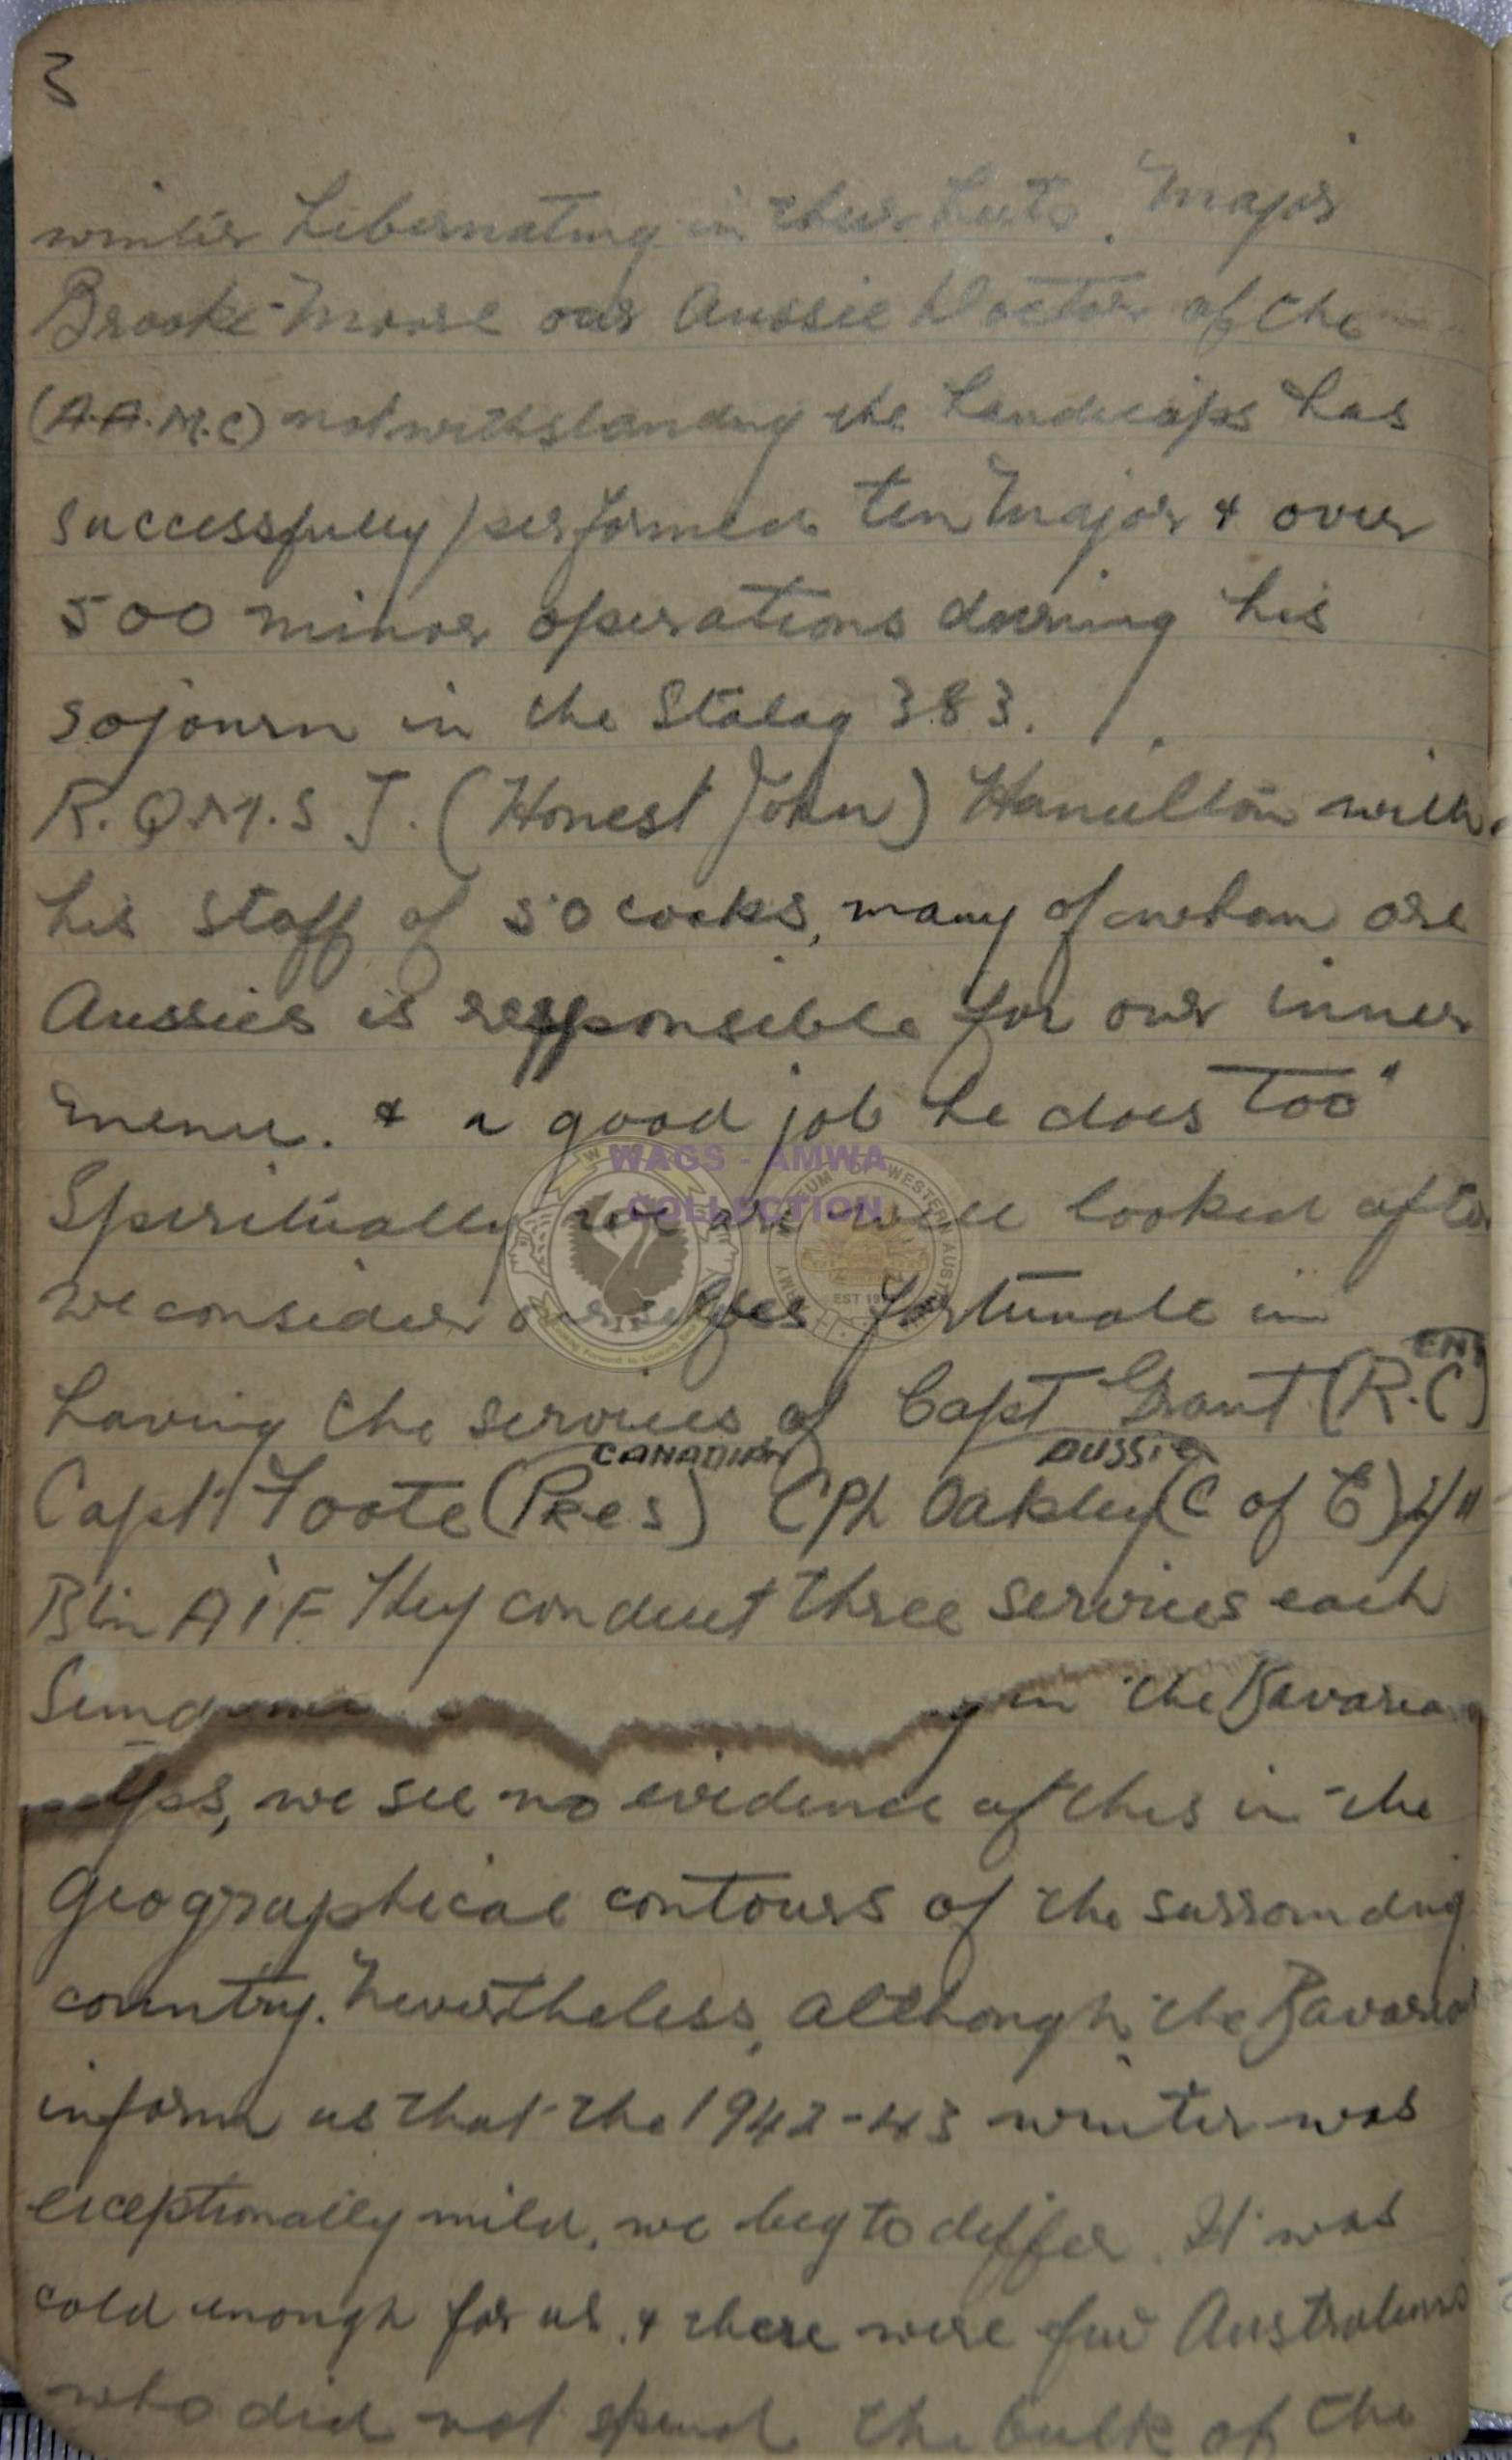 3
winter hibernating in their huts. Major
Brooke-Moore our Aussie Doctor of the
(A.A.M.C) notwithstanding the handicaps has
successfully performed ten Major & over
500 minor operations during his
sojourn in the Stalag 383.
R.Q.M.S J. (Honest John) Hamilton with
his staff of 50 cooks, many of whom are
Aussies is responsible for our inner
menu. & a good job he does too"
Spiritually we are well looked after
we consider ourselves fortunate in
ENG
having the services of Capt Grant (R.C)
CANADIAN AUSSIE
Capt Foote (Pres) CPL Oakley (C of E) 2/11
Btln AIF They conduct three services each
in the Bavarian
Alps, we see no evidence of this in the
Geographical contours of the surrounding
country. Nevertheless, although the Bavarian
inform us that the 1942-43 winter was
exceptionally mild, we beg to differ. It was
cold enough for us, & there were few Australians
who did not spend the bulk of the
WAGS - AMWA
COLLECTION